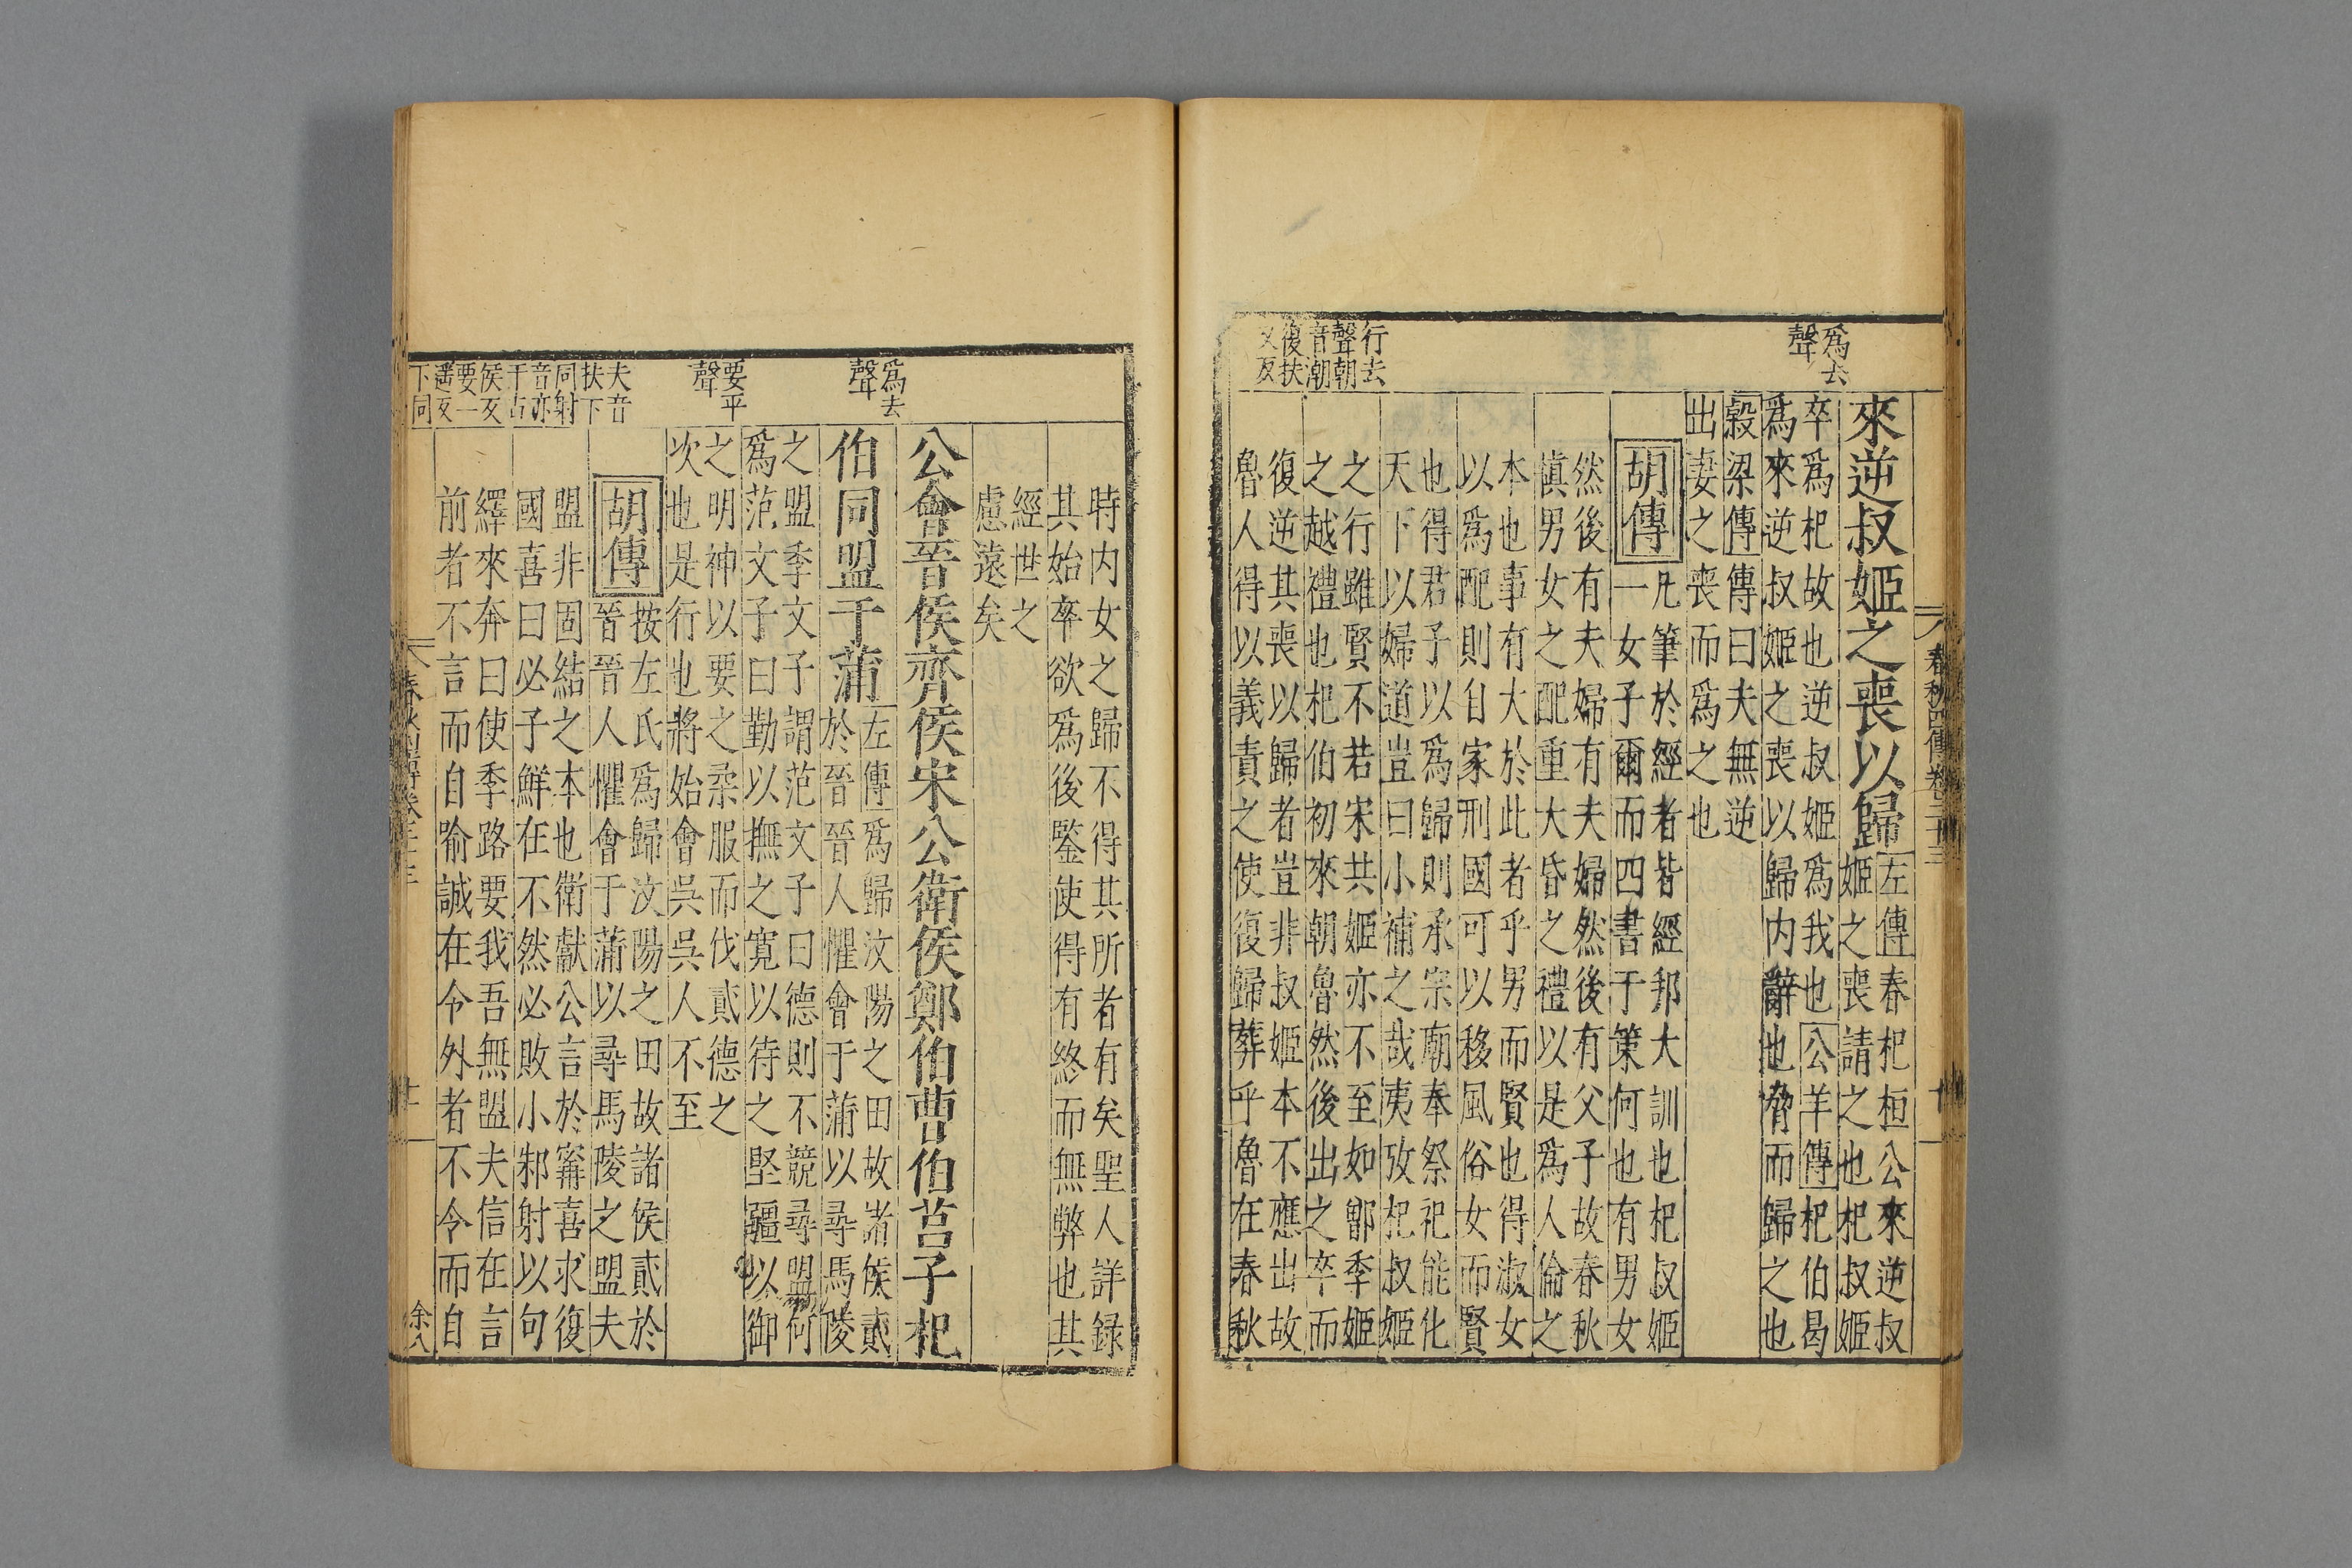 春秋四傳卷二十三
十
爲去
聲
行去
聲朝
音潮
復扶
又反
來逆叔姬之喪以歸
左傳春杞桓公來逆叔
姬之喪請之也杞叔姬
卒爲杞故也逆叔姬爲我也公羊傳杞伯曷
爲來逆叔姬之喪以歸内辭也脅而歸之也
穀梁傳傳曰夫無逆
出妻之喪而爲之也
胡傳
凡筆於經者皆經邦大訓也杞叔姬
一女子爾而四書于策何也有男女
然後有夫婦有夫婦然後有父子故春秋
慎男女之配重大昏之禮以是爲人倫之
本也事有大於此者乎男而賢也得淑女
以爲配則自家刑國可以移風俗女而賢
也得君子以爲歸則承宗廟奉祭祀能化
天下以婦道豈曰小補之哉夷攷杞叔姬
之行雖賢不若宋共姬亦不至如鄫季姬
之越禮也杞伯初來朝魯然後出之卒而
復逆其喪以歸者豈非叔姬本不應出故
魯人得以義責之使復歸葬乎魯在春秋
爲去
聲
要平
聲
夫音
扶下
同射
音亦
于占
侯反
要一
遥反
下同
時内女之歸不得其所者有矣聖人詳録
其始卒欲爲後鑒使得有終而無弊也其
經世之
慮遠矣
公會晉侯齊侯宋公衛侯鄭伯曹伯莒子杞
伯同盟于蒲
左傳爲歸汶陽之田故諸侯貳
於晉晉人懼會于蒲以尋馬陵
之盟季文子謂范文子曰德則不競尋盟何
爲范文子曰勤以撫之寬以待之堅疆以御
之明神以要之柔服而伐貳德之
次也是行也將始會吳吳人不至
胡傳
按左氏爲歸汶陽之田故諸侯貳於
晉晉人懼會于蒲以尋馬陵之盟夫
盟非固結之本也衛獻公言於甯喜求復
國喜曰必子鮮在不然必敗小邾射以句
繹來奔曰使季路要我吾無盟夫信在言
前者不言而自喻誠在令外者不令而自
十一
余八